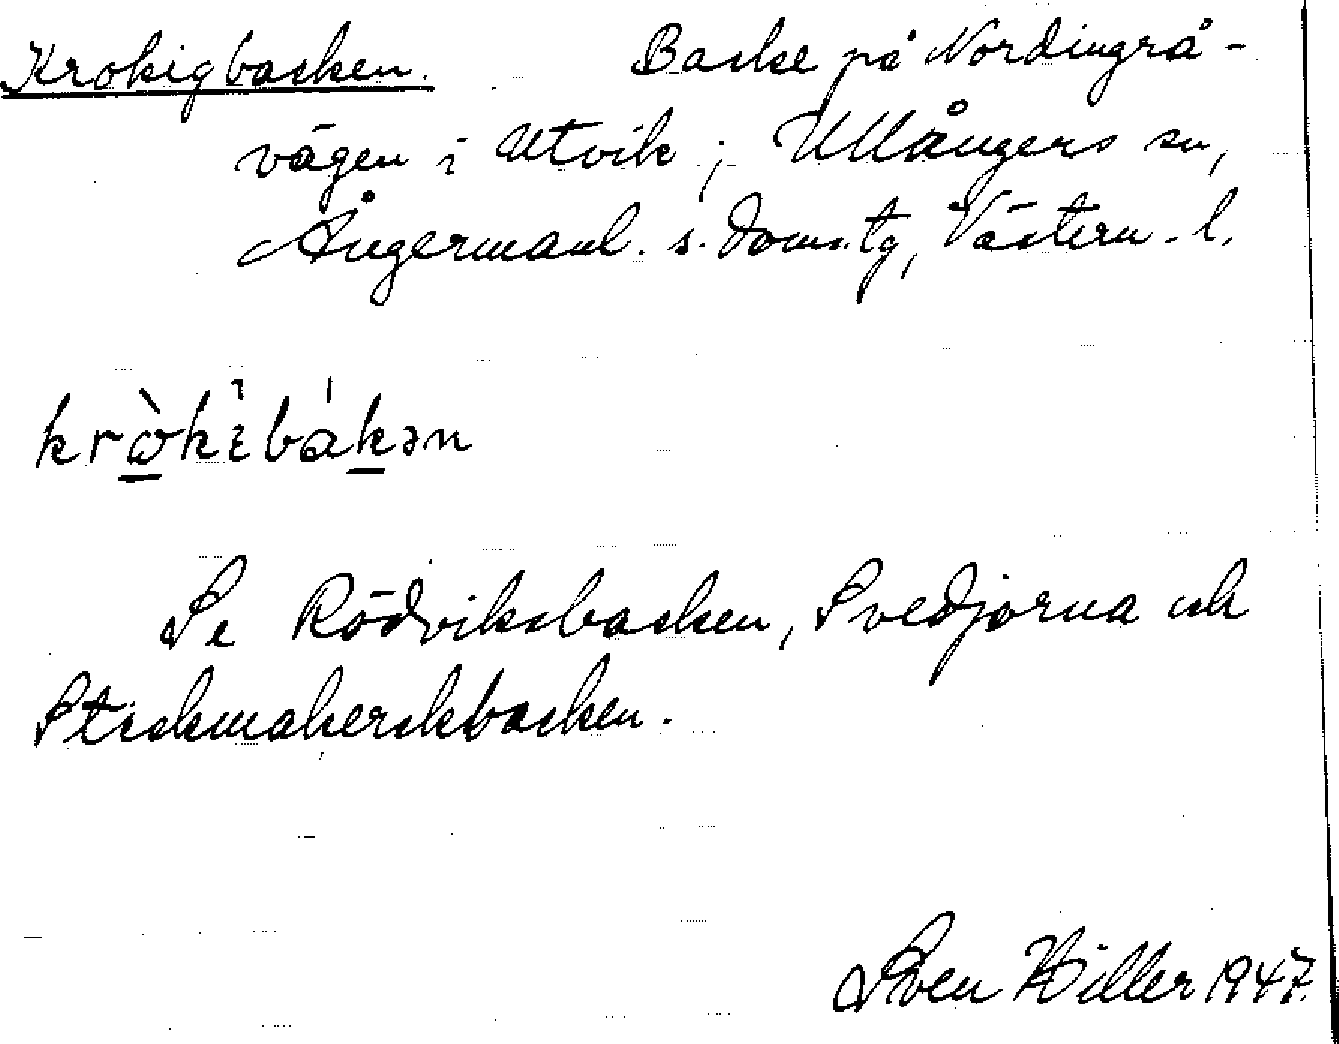 Krokigbacken. Backe på Nordingrå-
vägen i Utvik; Ullångers sn,
Ångermanl. s. doms.tg, Västern.l.
kròkèbákən
Se Rödviksbacken, Svedjorna och
Stickmakerskbacken.
Sven Hiller 1947.